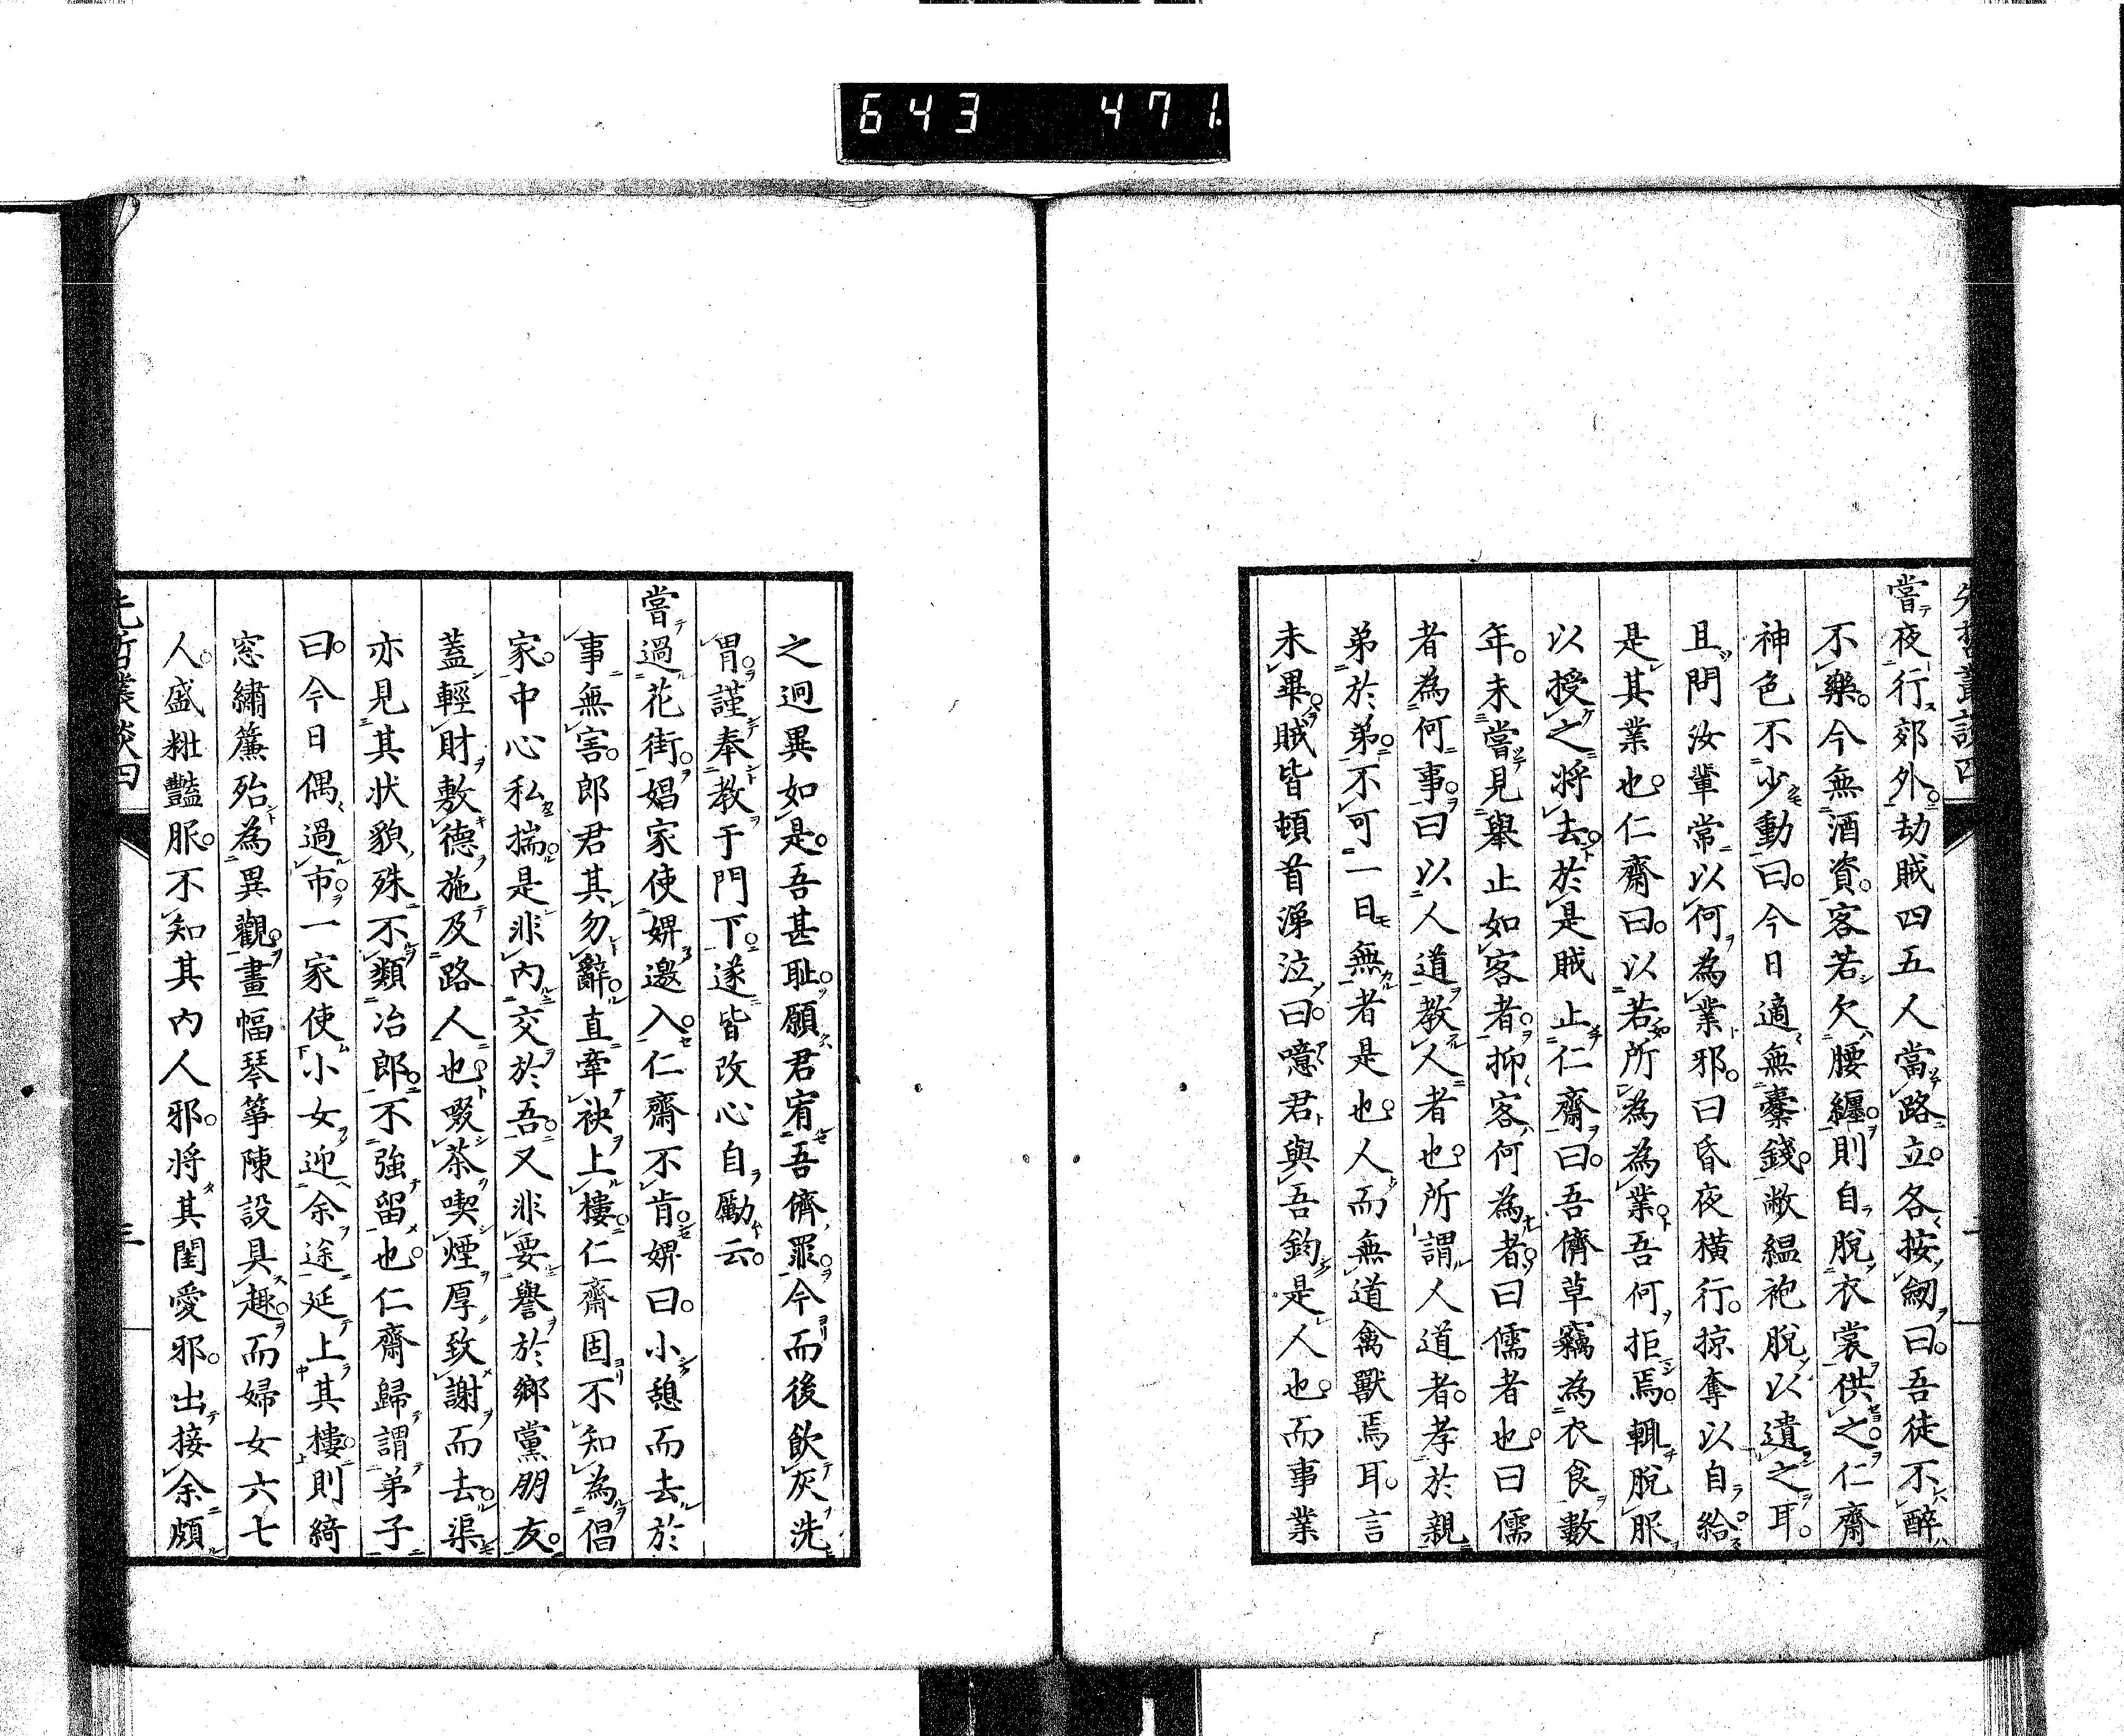 643 471
先哲叢談四
嘗夜行郊外。劫賊四五人當路立。各按劒曰。吾徒不醉
不樂。今無酒資。客若欠腰纏。則自脫衣裳供之。仁齋
神色不少動曰。今日適無橐錢。敝縕袍脫以遺之耳。
且問汝輩常以何為業邪。曰昏夜橫行。掠奪以自給。
是其業也。仁齋曰。以若所為為業。吾何拒焉。輒脫服
以授之將去。於是賊止仁齋曰。吾儕草竊為衣食數
年。未嘗見舉止如客者。抑客何為者。曰儒者也。曰儒
者為何事。曰以人道教人者也。所謂人道者。孝於親
弟於弟。不可一日無者是也。人而無道禽獸焉耳。言
未畢。賊皆頓首涕泣曰。噫君與吾鈞是人也。而事業
之迥異如是。吾甚耻。願君宥吾儕罪。今而後飲灰洗
胃。謹奉教于門下。遂皆改心自勵云。
嘗過花街。娼家使婢邀入。仁齋不肯。婢曰。小憩而去於
事無害。郎君其勿辭。直牽袂上樓。仁齋固不知為倡
家。中心私揣。是非內交於吾。又非要譽於鄉黨朋友。
蓋輕財敷德施及路人也。啜茶喫煙厚致謝而去。渠
亦見其狀貌殊不類冶郎。不強留也。仁齋歸謂弟子
曰。今日偶過市。一家使小女迎余途延上其樓。則綺
窓繡簾殆為異觀。畫幅琴箏陳設具趣。而婦女六七
人。盛粧豔服。不知其內人邪。將其閨愛邪。出接余頗
先哲叢談四
三